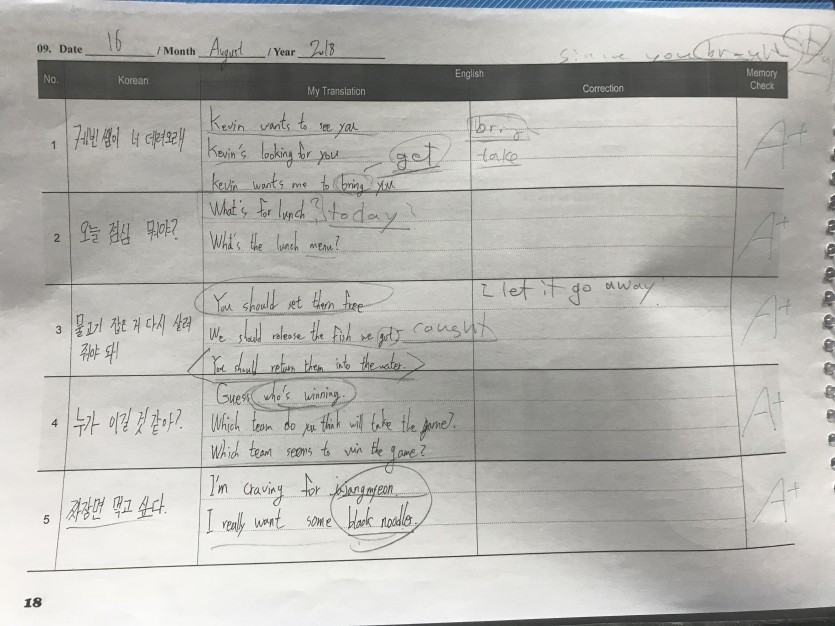 09. Date 16 / Month August / Year 2018
since you brought it
No. Korean English Memory Check
My Translation Correction
1 케빈쌤이 너 데려오래
Kevin wants to see you bring
Kevin's looking for you get take
Kevin wants me to bring you
A+
2 오늘 점심 뭐야?
What's for lunch? today?
What's the lunch menu?
A+
3 물고기 잡은 거 다시 살려
줘야 돼
You should set them free I let it go away
We should release the fish we got caught
You should return them into the water.
A+
4 누가 이길 것 같아?
Guess who's winning.
Which team do you think will take the game?
Which team seems to win the game?
A+
5 짜장면 먹고 싶다.
I'm craving for jajangmyeon.
I really want some black noodles.
A+
18